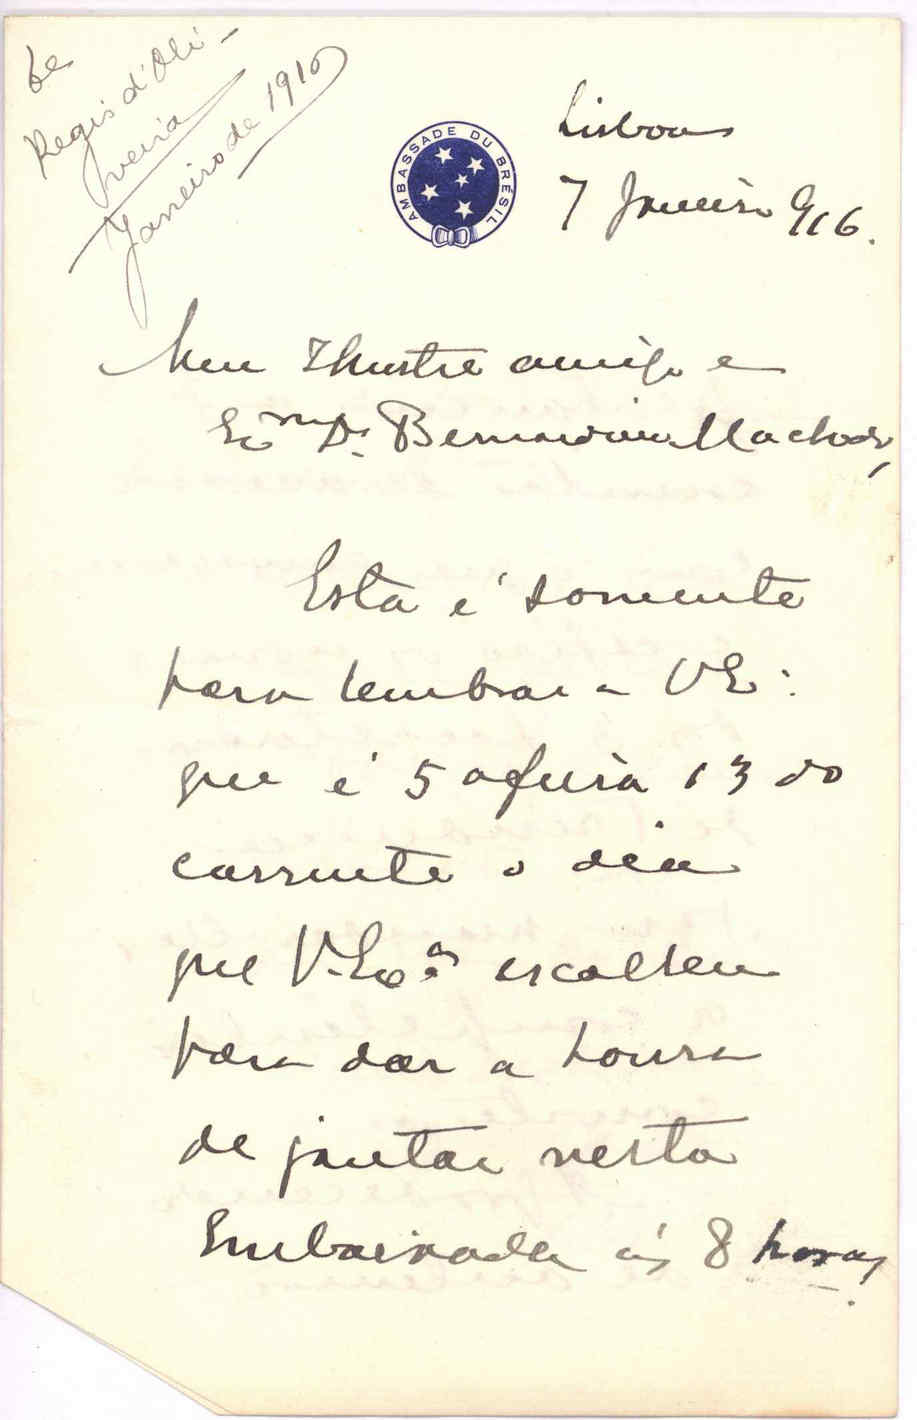 de
Regis d'Oli-
veira
Janeiro de 1916
AMBASSADE DU BRÉSIL
Lisboa
7 Janeiro 916.
Meu Illustre amigo e
Exmo Dr. Bernardino Machado,
Esta é somente
para lembrar a VE:
que é 5a feira 13 do
corrente o dia
que V. Exa. escolheu
para dar a honra
de jantar nesta
Embaixada ás 8 horas.